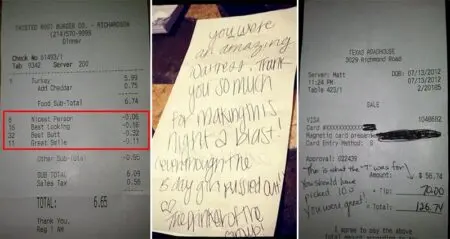 TWISTED ROOT BURGER CO. - RICHARDSON
(214)570-9999
Dinner
Check No 61493/1
Tab 0342 Server 200
Turkey 5.99
Add Cheddar 0.75
Food Sub-Total 6.74
6 Nicest Person -0.06
16 Best Looking -0.16
32 Best Butt -0.32
11 Great Smile -0.11
Other Sub-Total -0.65
SUB TOTAL: 6.09
Sales Tax 0.56
TOTAL: 6.65
Thank You,
Reg 1 AM
you were
an amazing
waitress. Thank
you so much
for making this
night a blast!
(even though the
bday girl passed out)
the drinker of the
group!
TEXAS ROADHOUSE
3029 Richmond Road
Server: Matt DOB: 07/13/2012
11:24 PM 07/13/2012
Table 423/1 2/20185
SALE
VISA 1048682
Card
Magnetic card present:
Card Entry Method: S
Approval: 022439
This is what the "T" was for
Amount: $ 56.74
You should have
picked 100
+ Tip: 70.00
you were great
= Total: 126.74
I agree to pay the above